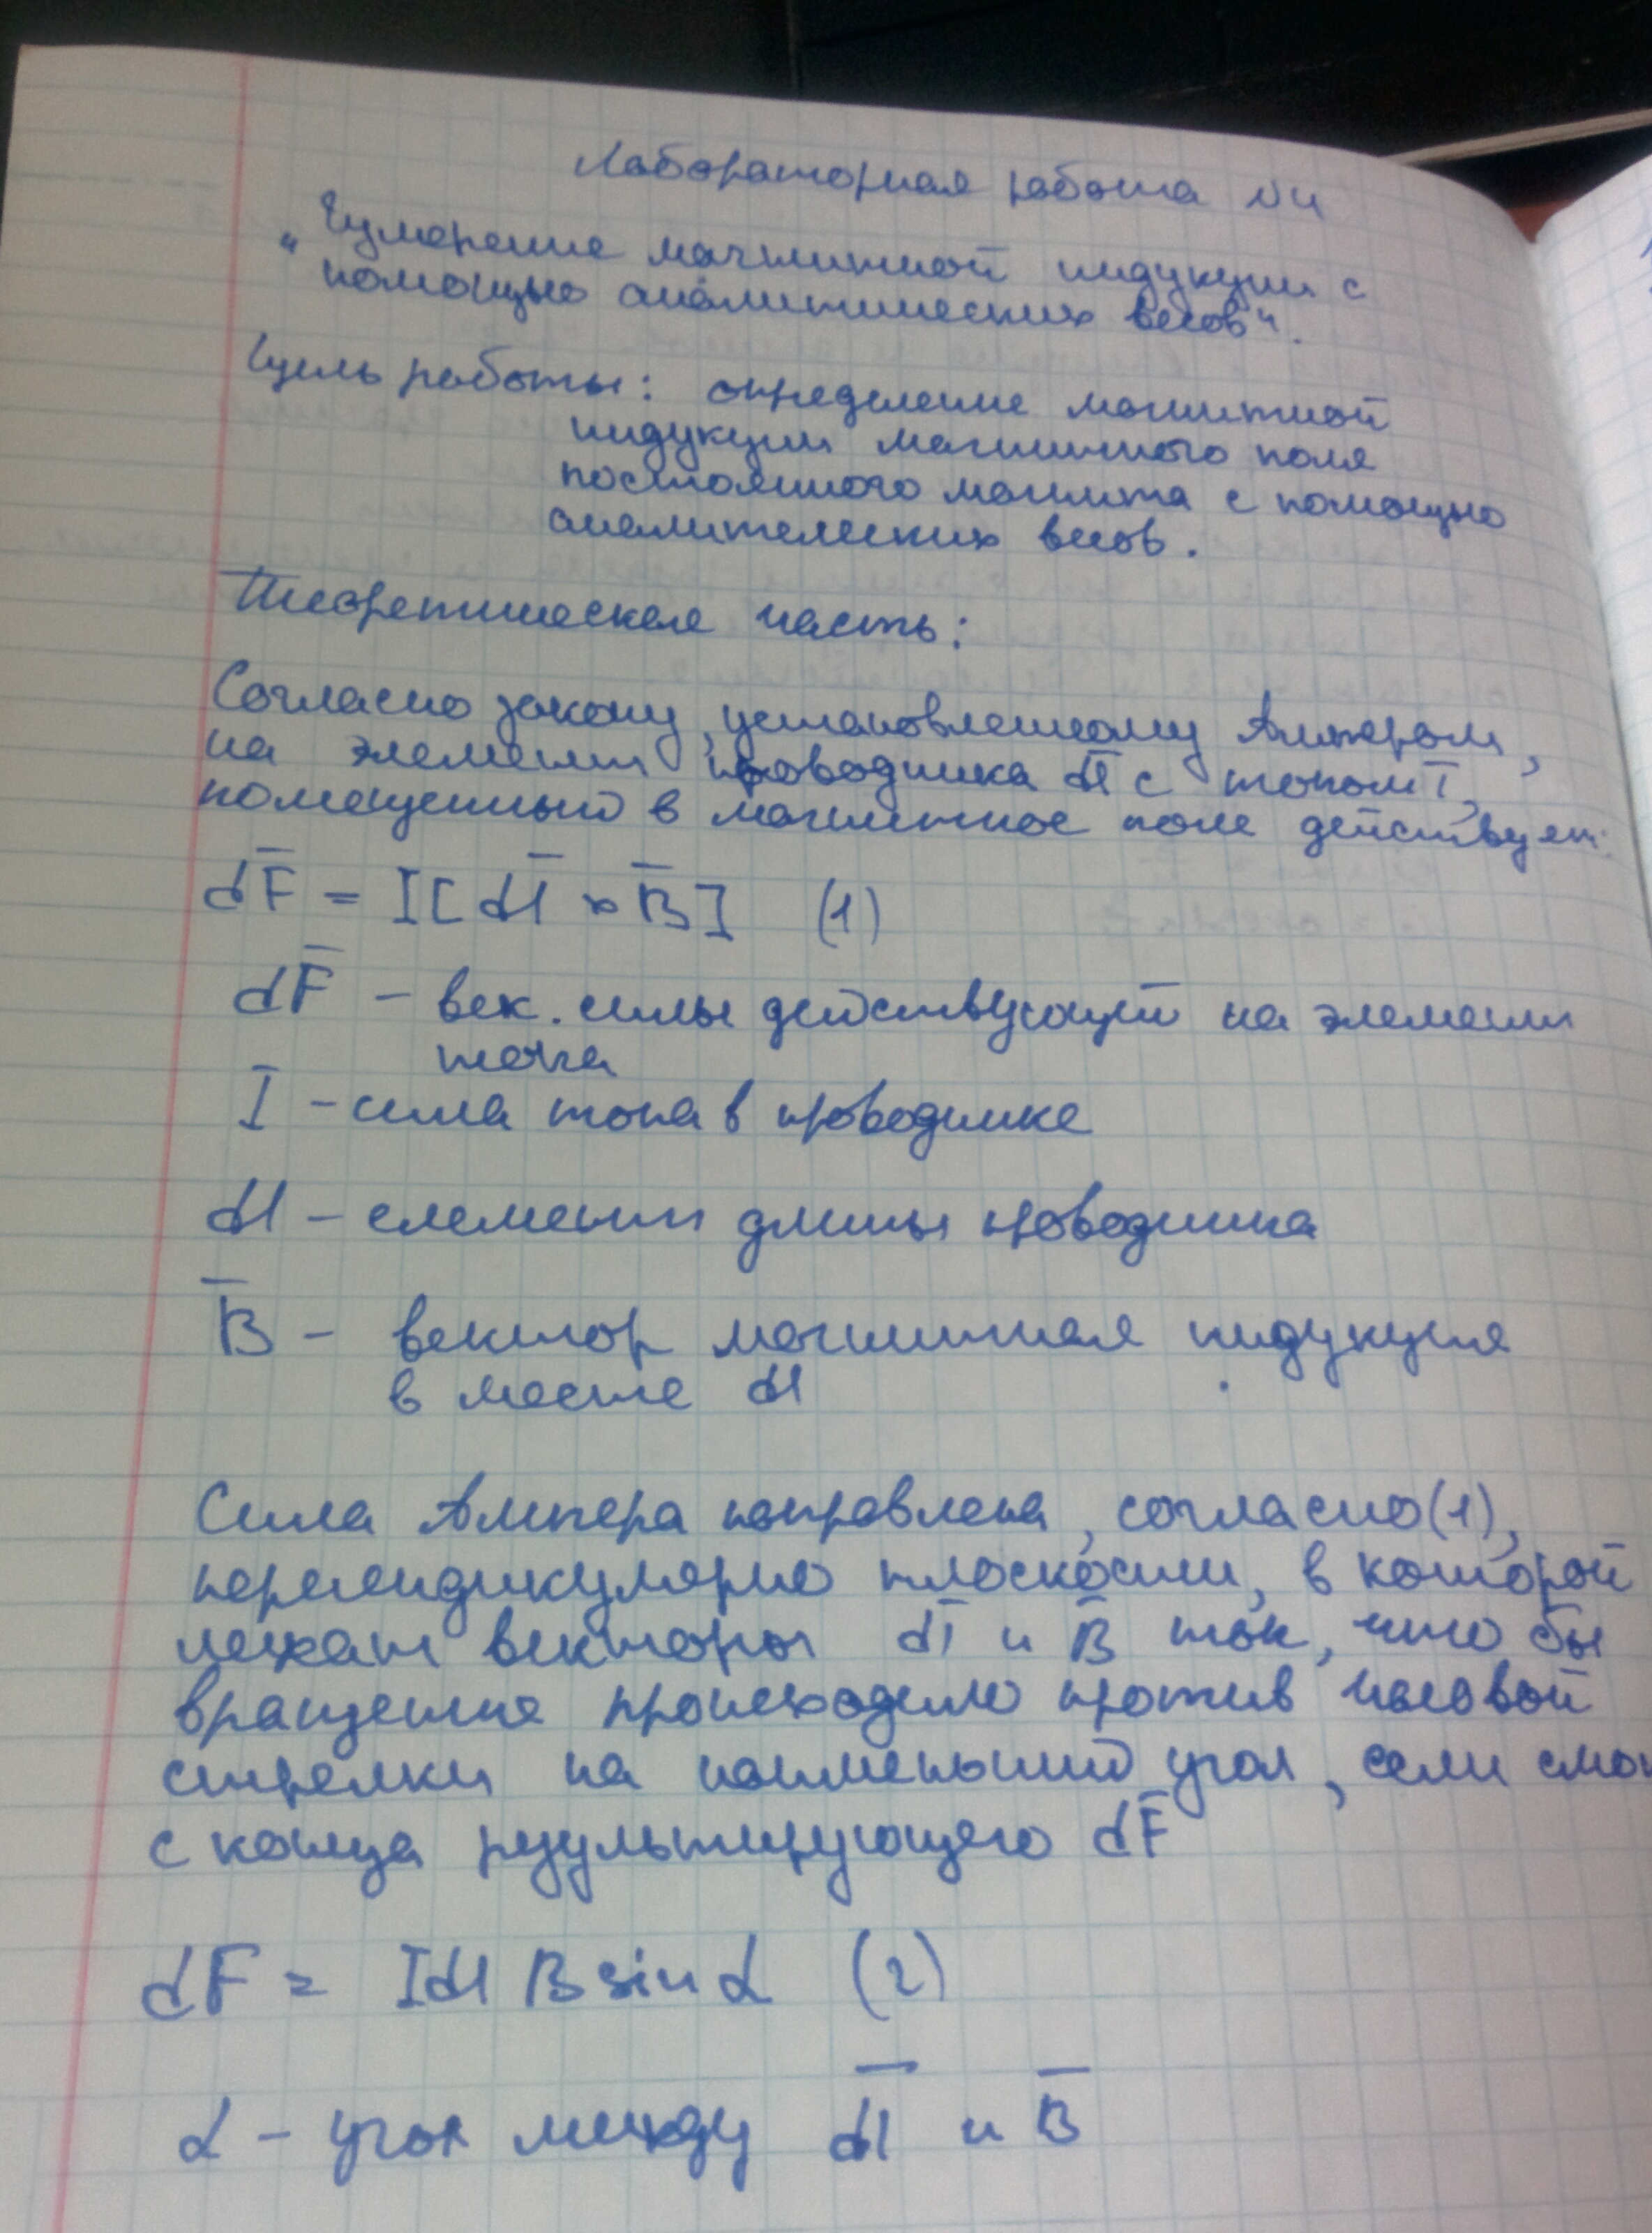 Лабораторная работа №4
„Измерение магнитной индукции с
помощью аналитических весов“.
Цель работы: определение магнитной
индукции магнитного поля
постоянного магнита с помощью
аналитических весов.
Теоретическая часть:
Согласно закону, установленному Ампером,
на элемент проводника dl с током I,
помещенный в магнитное поле действует:
dF̅ = I[dl̅ × B̅] (1)
dF̅ – век. силы действующей на элемент
тока
I – сила тока в проводнике
dl – елемент длины проводника
B̅ – вектор магнитная индукция
в месте dl
Сила Ампера направлена, согласно (1),
перпендикулярно плоскости, в которой
лежат векторы dl̅ и B̅ так, что бы
вращение происходило против часовой
стрелки на наименьший угол, если смо
с конца результирующего dF̅
dF = Idl B sin α (2)
α – угол между dl̅ и B̅